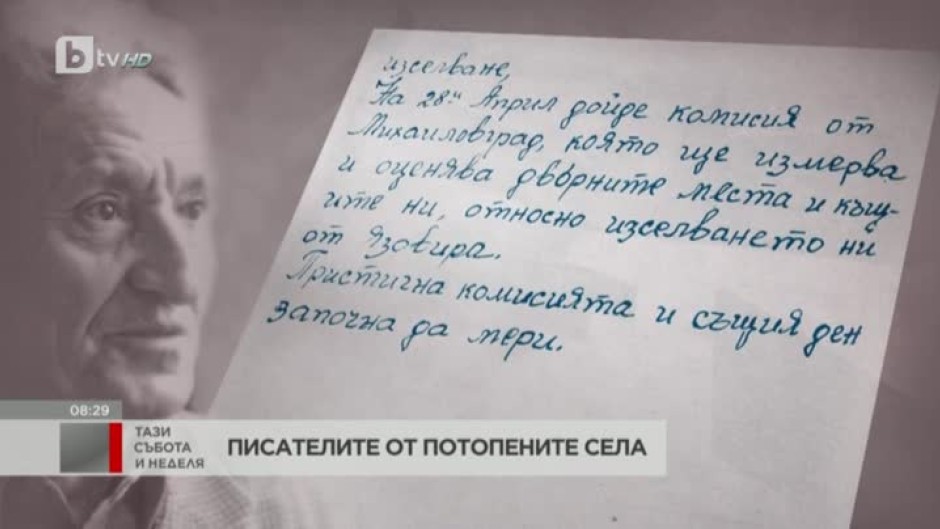 btv HD
изселване,
На 28ми Април дойде комисия от
Михаиловград, която ще измерва
и оценява дворните места и къщ-
ите ни, относно изселването ни
от Язовира.
Пристигна комисията и същия ден
започна да мери.
08:29
ТАЗИ
СЪБОТА
И НЕДЕЛЯ
ПИСАТЕЛИТЕ ОТ ПОТОПЕНИТЕ СЕЛА